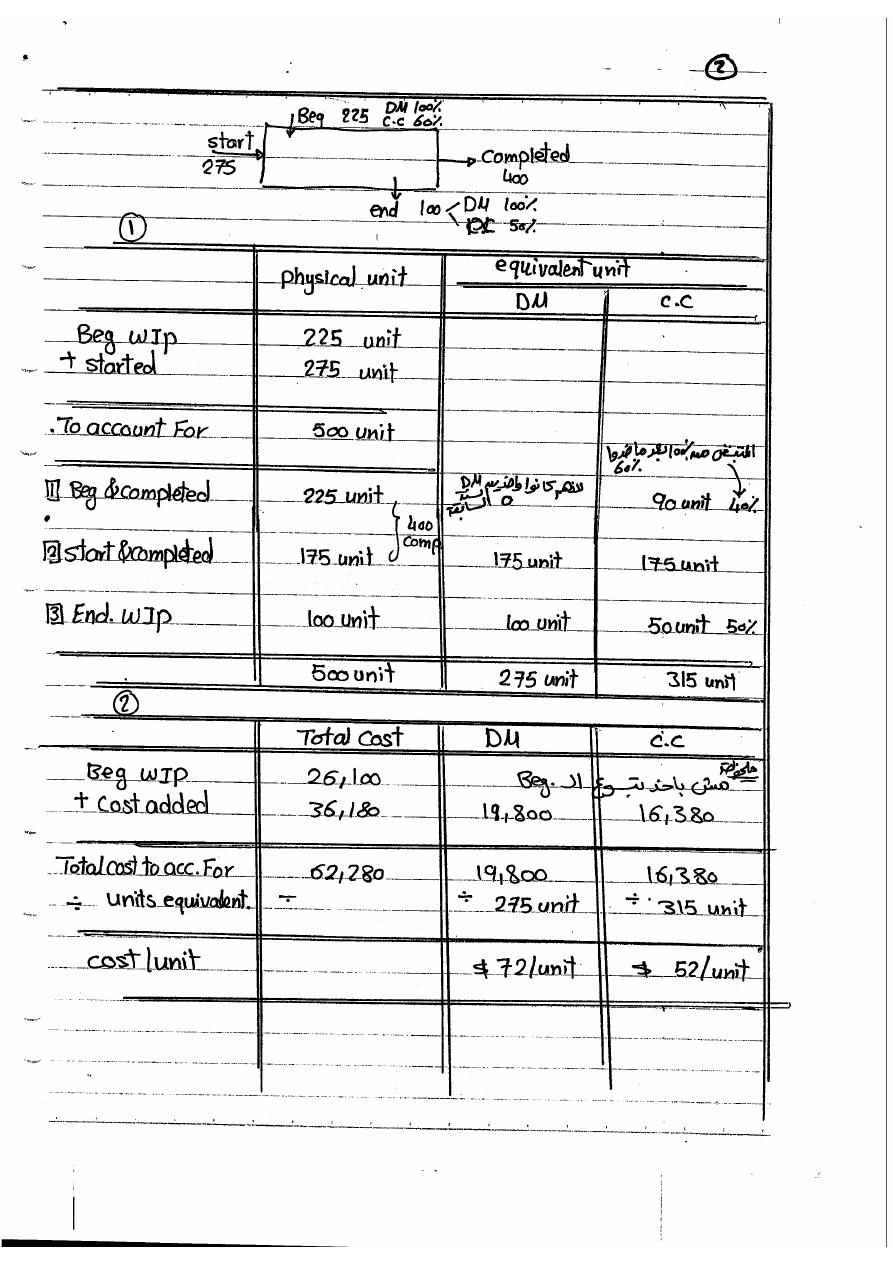 2
Beg 225 DM 100%
C.C 60%
start
275
Completed
400
end 100 DM 100%
50%
1
physical unit equivalent unit
DM C.C
Beg WIp 225 unit
+ started 275 unit
To account For 500 unit
60%
1 Beg & completed 225 unit 0 90 unit 40%
400
comp
2 start & completed 175 unit 175 unit 175 unit
3 End. WIp 100 unit 100 unit 50 unit 50%
500 unit 275 unit 315 unit
2
Total Cost DM C.C
ملحوظة
Beg WIP 26,100 مش باخد بتوع ال Beg.
+ Cost added 36,180 19,800 16,380
Total cost to acc. For 62,280 19,800 16,380
÷ units equivalent. ÷ ÷ 275 unit ÷ 315 unit
cost/unit $ 72/unit $ 52/unit